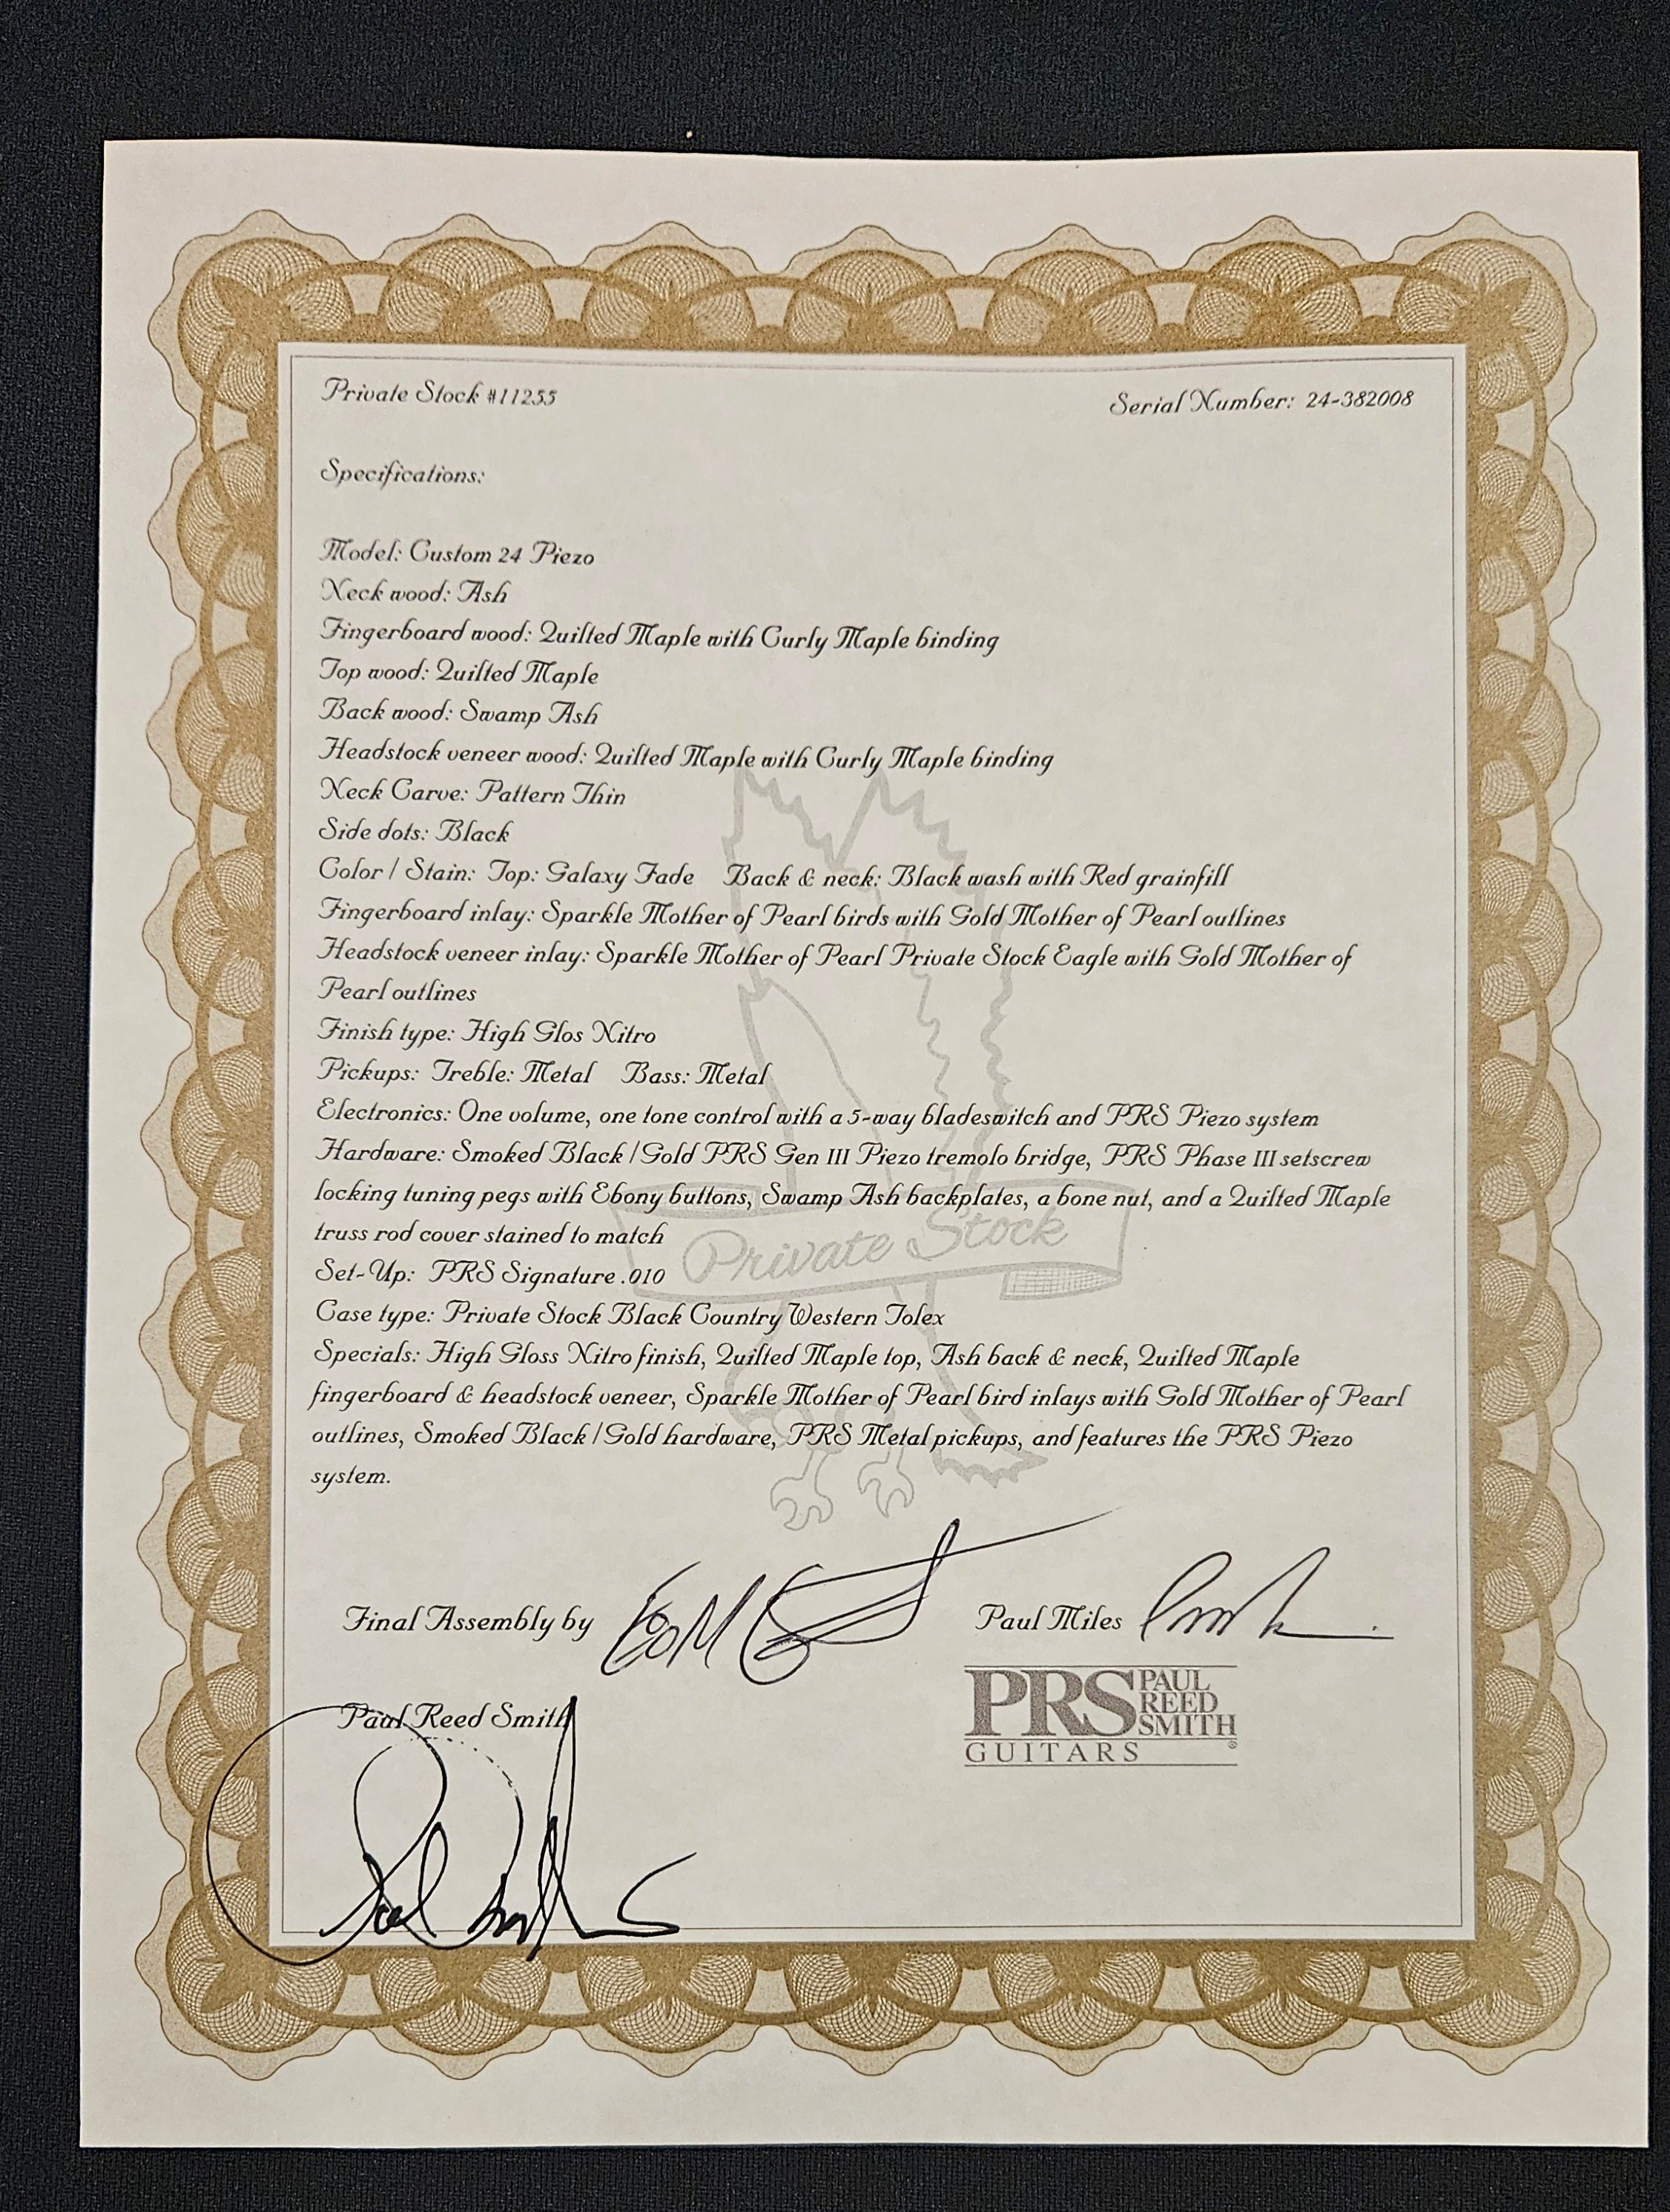 Private Stock #11255
Serial Number: 24-382008
Specifications:
Model: Custom 24 Piezo
Neck wood: Ash
Fingerboard wood: Quilted Maple with Curly Maple binding
Top wood: Quilted Maple
Back wood: Swamp Ash
Headstock veneer wood: Quilted Maple with Curly Maple binding
Neck Carve: Pattern Thin
Side dots: Black
Color / Stain: Top: Galaxy Fade Back & neck: Black wash with Red grainfill
Fingerboard inlay: Sparkle Mother of Pearl birds with Gold Mother of Pearl outlines
Headstock veneer inlay: Sparkle Mother of Pearl Private Stock Eagle with Gold Mother of
Pearl outlines
Finish type: High Glos Nitro
Pickups: Treble: Metal Bass: Metal
Electronics: One volume, one tone control with a 5-way bladeswitch and PRS Piezo system
Hardware: Smoked Black / Gold PRS Gen III Piezo tremolo bridge, PRS Phase III setscrew
locking tuning pegs with Ebony buttons, Swamp Ash backplates, a bone nut, and a Quilted Maple
truss rod cover stained to match
Private Stock
Set-Up: PRS Signature .010
Case type: Private Stock Black Country Western Tolex
Specials: High Gloss Nitro finish, Quilted Maple top, Ash back & neck, Quilted Maple
fingerboard & headstock veneer, Sparkle Mother of Pearl bird inlays with Gold Mother of Pearl
outlines, Smoked Black / Gold hardware, PRS Metal pickups, and features the PRS Piezo
system.
Final Assembly by
Paul Miles
Paul Reed Smith
PRS PAUL REED SMITH
GUITARS ®